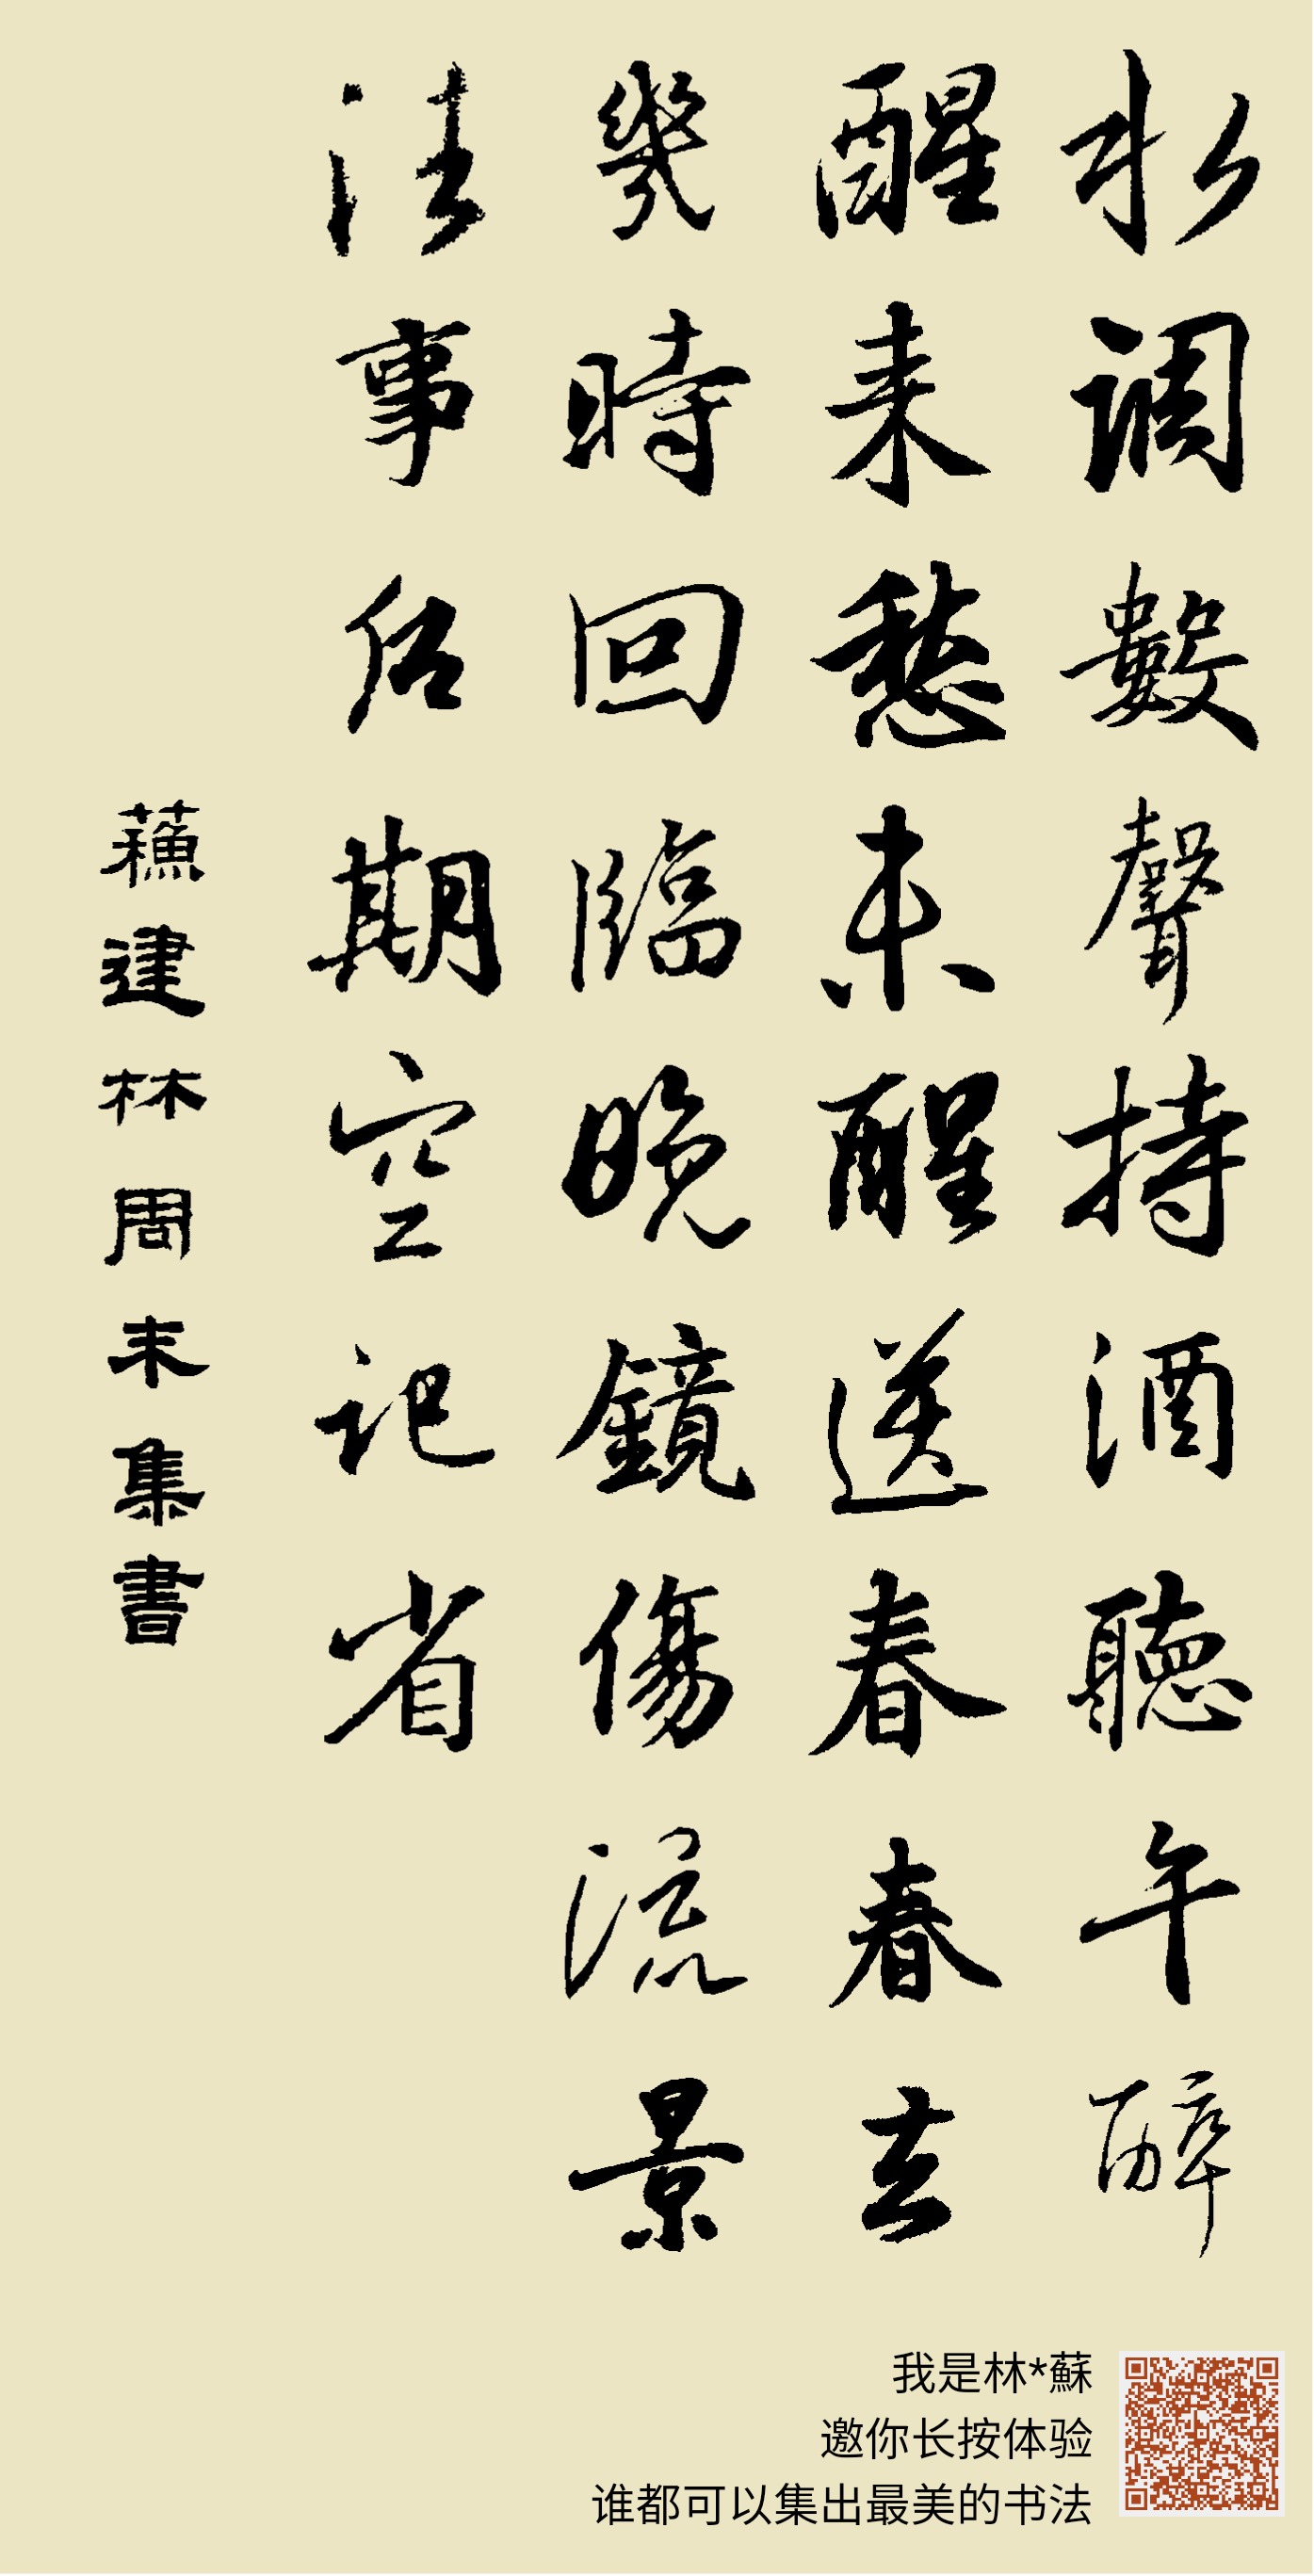 水调數聲持酒聽午醉
醒来愁未醒送春春去
幾時回臨晚鏡傷流景
往事后期空记省
蘓建林周末集書
我是林*蘇
邀你长按体验
谁都可以集出最美的书法